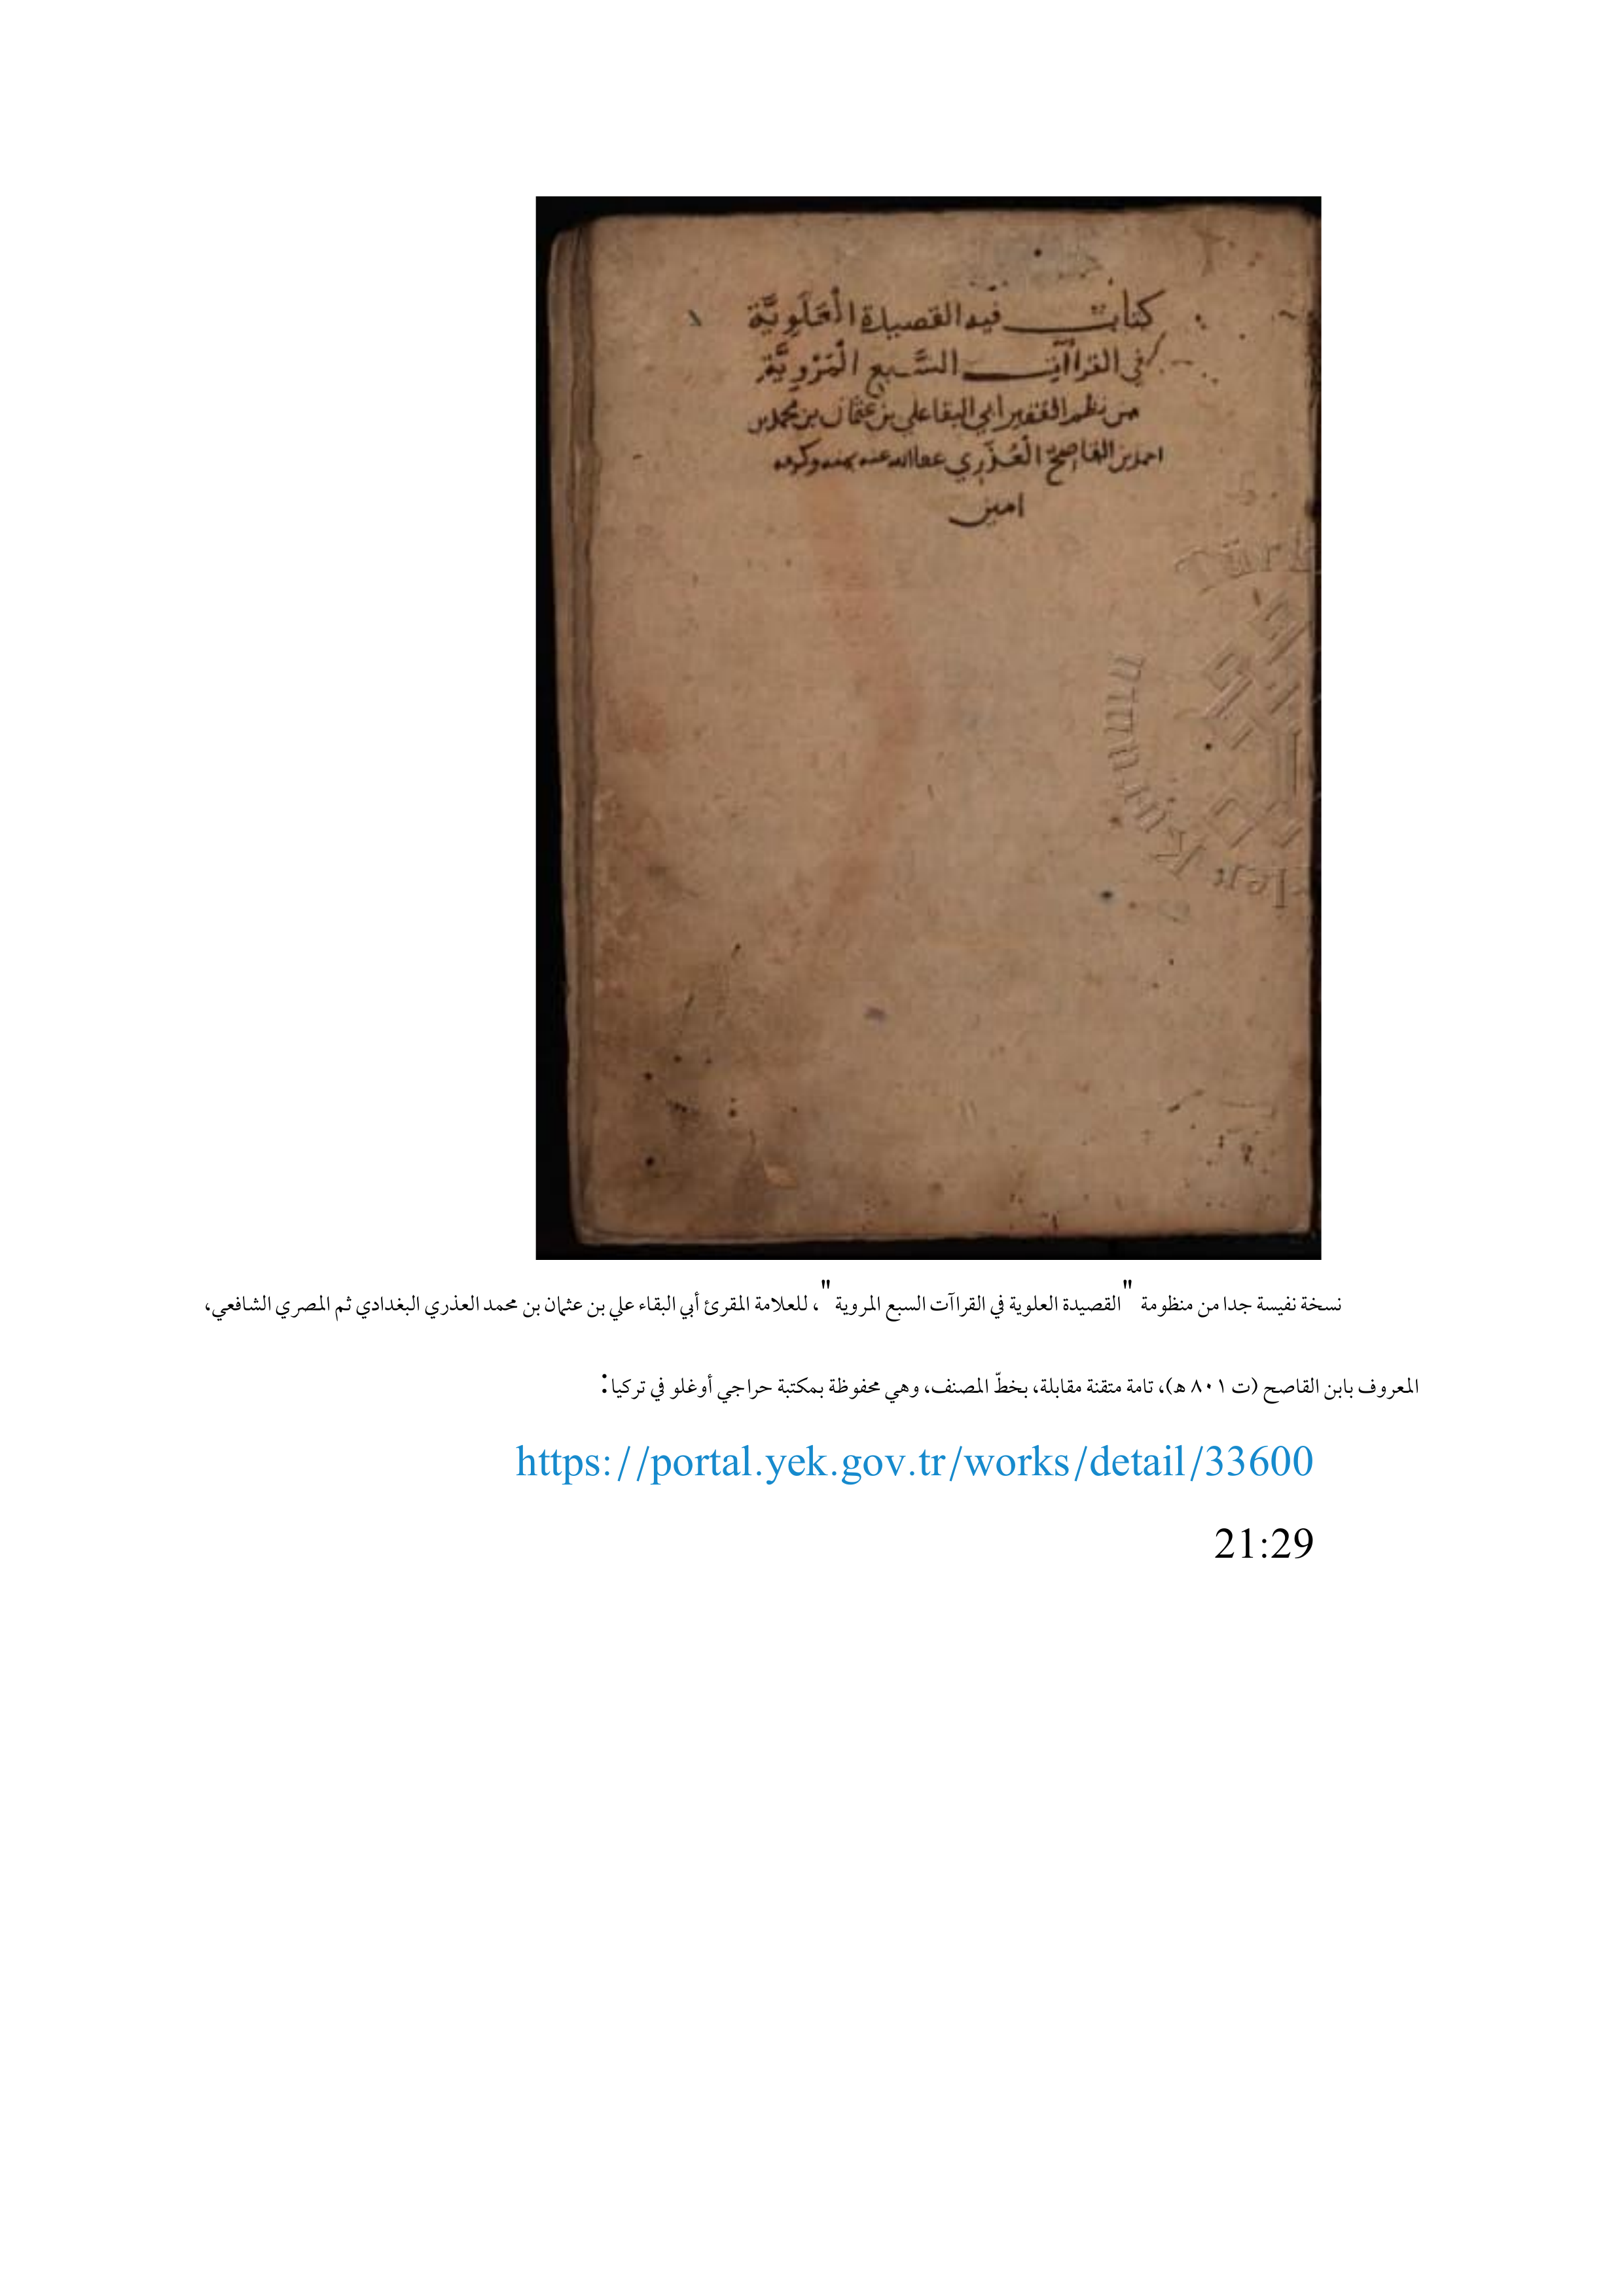 كتاب فيه القصيدة الْعَلَويَّة
في القراآت السَّبع الْمَرْويَّة
من نظم الفقير ابي البقا علي بن عثمان بن محمد بن
احمد بن القاصح الْعُذْري عفا الله عنه بمنه وكرمه
امين
نسخة نفيسة جدا من منظومة "القصيدة العلوية في القراآت السبع المروية"، للعلامة المقرئ أبي البقاء علي بن عثمان بن محمد العذري البغدادي ثم المصري الشافعي،
المعروف بابن القاصح (ت ٨٠١ هـ)، تامة متقنة مقابلة، بخطّ المصنف، وهي محفوظة بمكتبة حراجي أوغلو في تركيا:
https://portal.yek.gov.tr/works/detail/33600
21:29